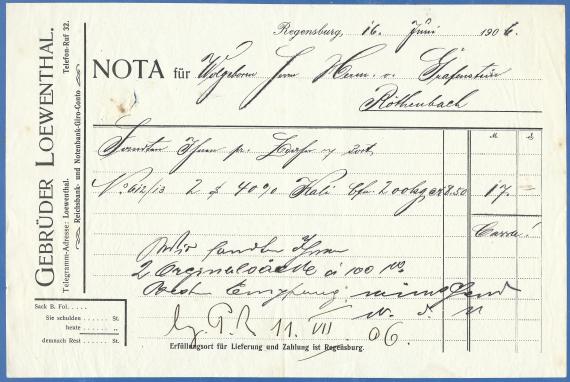 GEBRÜDER LOEWENTHAL.
Telegramm-Adresse: Loewenthal. Telefon-Ruf 32.
Reichsbank- und Notenbank-Giro-Conto
Regensburg, 16. Juni 1906.
NOTA für Wolgeboren Herrn Herm. v. Grafenstein
Röthenbach
M
Sandten Ihnen pr.
No 612/13 2 40% Kali 200 kg 8.50 17.-
Cassa!
Wir sandten Ihnen
2 Originalsäcke á 100 No
Empfang
Sack B. Fol.
Sie schulden St.
heute "
demnach Rest St.
11. VII 06.
Erfüllungsort für Lieferung und Zahlung ist Regensburg.